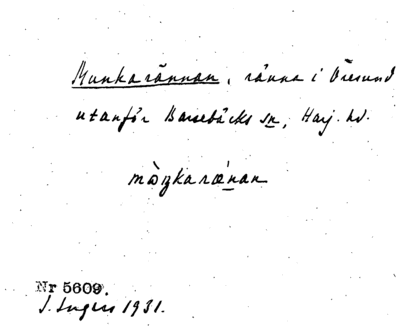 Munkarännan, ränna i Öresund
utanför Barsebäcks sn, Harj. hd.
Nr 5609.
J. Ingers 1931.